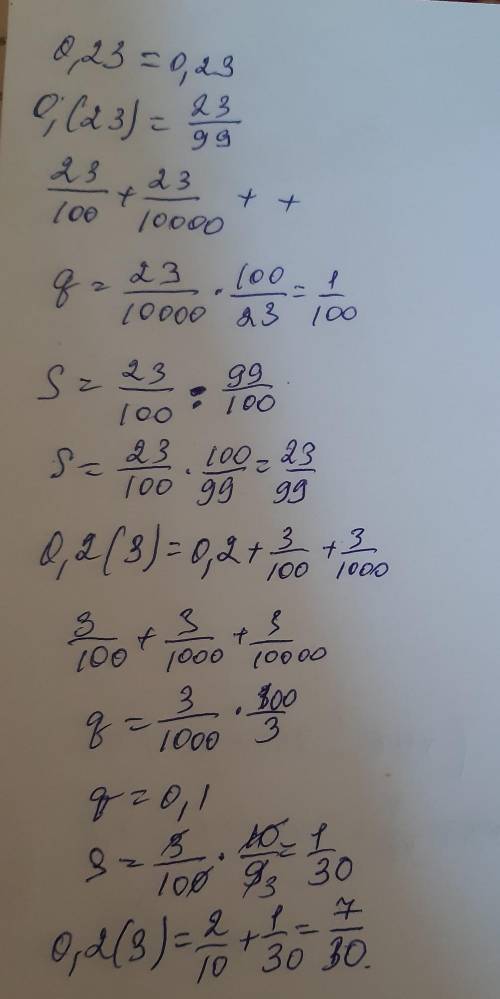 0,23 = 0,23
0,(23) = 23/99
23/100 + 23/10000 + +
q = 23/10000 · 100/23 = 1/100
S = 23/100 : 99/100
S = 23/100 · 100/99 = 23/99
0,2(3) = 0,2 + 3/100 + 3/1000
3/100 + 3/1000 + 3/10000
q = 3/1000 · 100/3
q = 0,1
S = 3/100 · 10/9 3 = 1/30
0,2(3) = 2/10 + 1/30 = 7/30.